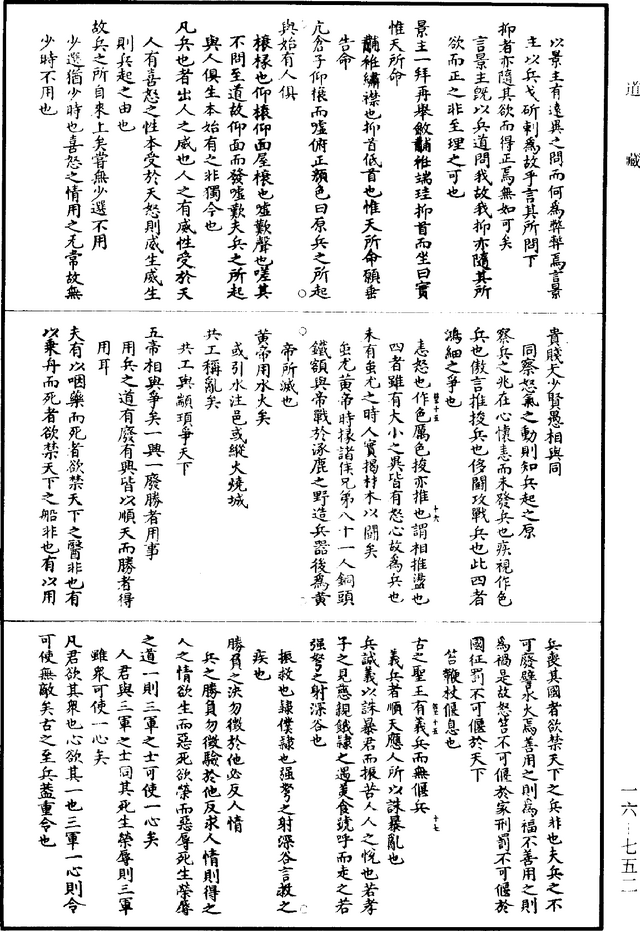 道藏
以景主有遠異之問而何爲弊弊焉言景
主以兵戈斫刺爲故乎言其所問下
抑者亦隨其欲而得正焉無如可矣
言景主旣以兵道問我故我抑亦隨其所
欲而正之非至理之可也
景主一拜再舉斂黼袵端珪抑首而坐曰實
惟天所命
黼袵繡襟也抑首低首也惟天所命願垂
告命
亢倉子仰榱而噓俯正顏色曰原兵之所起
與始有人俱
榱椽也仰榱仰面屋榱也噓歎聲也嗟其
不問至道故仰面而發噓歎夫兵之所起
與人俱生本始有之非獨今也
凡兵也者出人之威也人之有威性受於天
人有喜怒之性本受於天怒則威生威生
則兵起之由也
故兵之所自來上矣嘗無少選不用
少選猶少時也喜怒之情用之无常故無
少時不用也
貴賤夭少賢愚相與同
同察怒氣之動則知兵起之原
察兵之兆在心懷恚而未發兵也疾視作色
兵也傲言推捘兵也侈鬭攻戰兵也此四者
鴻細之爭也
恚怒也作色厲色捘亦推也謂相推盪也
四者雖有大小之異皆有怒心故爲兵也
未有蚩尤之時人實揭材木以鬭矣
蚩尤黃帝時據諸侯兄弟八十一人銅頭
鐵額與帝戰於涿鹿之野造兵器後爲黃
帝所滅也
黃帝用水火矣
或引水注邑或縱火燒城
共工稱亂矣
共工與顓頊爭天下
五帝相與爭矣一興一廢勝者用事
用兵之道有廢有興皆以順天而勝者得
用耳
夫有以咽藥而死者欲禁天下之醫非也有
以乗舟而死者欲禁天下之船非也有以用
兵喪其國者欲禁天下之兵非也夫兵之不
可廢譬水火焉善用之則爲福不善用之則
爲禍是故怒笞不可偃於家刑罰不可偃於
國征罰不可偃於天下
笞鞭杖偃息也
古之聖王有義兵而無偃兵
義兵者順天應人所以誅暴亂也
兵誠義以誅暴君而振苦人人之悅也若孝
子之見慈親餓隸之遇美食號呼而走之若
强弩之射深谷也
振救也隸僕隸也强弩之射深谷言赦之
疾也
勝負之決勿徵於他必反人情
兵之勝負勿徵驗於他反求人情則得之
人之情欲生而惡死欲榮而惡辱死生榮辱
之道一則三軍之士可使一心矣
人君與三軍之士同其死生榮辱則三軍
雖衆可使一心矣
凡君欲其衆也心欲其一也三軍一心則令
可使無敵矣古之至兵蓋重令也
一六—七五二